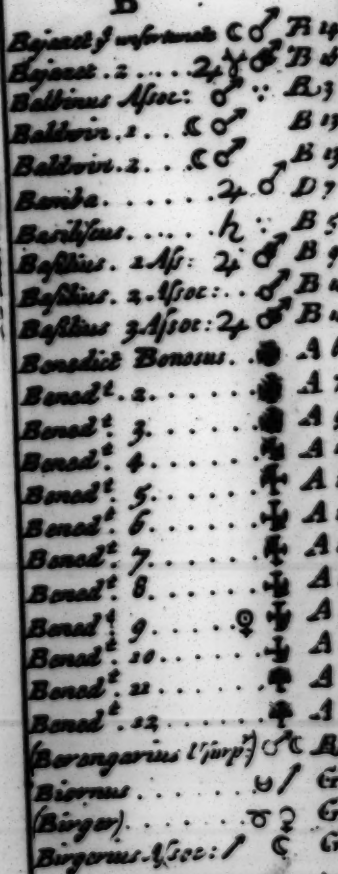 B
Bajazet yᵉ unfortunate ☾ ♂ B 14
Bajazet . 2 . . . . . ♃ ♉ ♂ B
Balbinus Assoc: ♂ ∵ B 3
Baldwin . 1 . . . ☾ ♂ B 13
Baldwin . 2 . . . ☾ ♂ B 13
Bamba . . . . . . . ♃ ♂ D 7
Basiliscus . . . . . ♄ ∵ B 5
Basilius . 1 Ass: ♃ ♂ B 9
Basilius . 2 . Assoc: . . ♂ B
Basilius 3 Assoc: ♃ ♂ B
Benedict Bonosus . . ✠ A
Bened.ᵗ . 2 . . . . . . . ✠ A
Bened.ᵗ 3 . . . . . . ✠ A
Bened.ᵗ 4 . . . . . . ✠ A
Bened.ᵗ 5 . . . . . . ✠ A
Bened.ᵗ 6 . . . . . . ✠ A
Bened.ᵗ 7 . . . . . . ✠ A
Bened.ᵗ 8 . . . . . . ✠ A
Bened.ᵗ 9 . . . . . ✠ A
Bened.ᵗ 10 . . . . . . ✠ A
Bened.ᵗ 11 . . . . . . ✠ A
Bened.ᵗ 12 . . . . . . ✠ A
(Berengarius Usurp.ʳ) ♂ ☾ B
Biornus . . . . . . . G
(Birger) . . . . . . . G
Birgerius Assoc: ☾ G